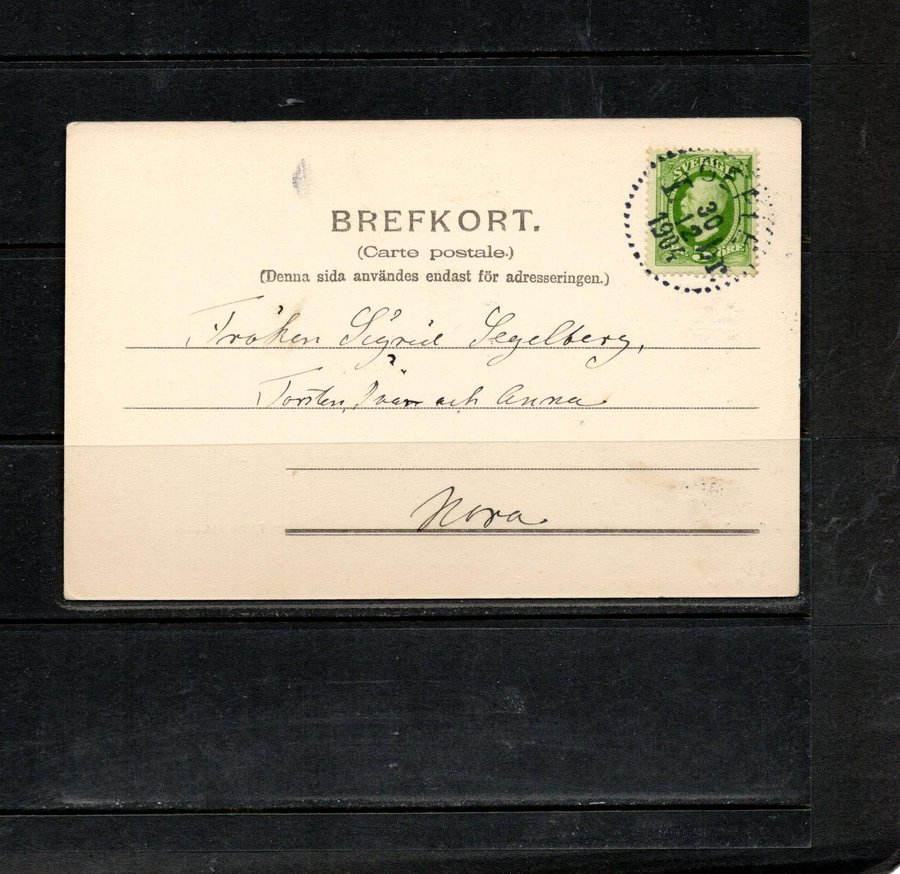 BREFKORT.
(Carte postale.)
(Denna sida användes endast för adresseringen.)
SVERIGE
30
12
Fröken Sigrid Segelberg,
Torsten, Ivar och Anna
Nora